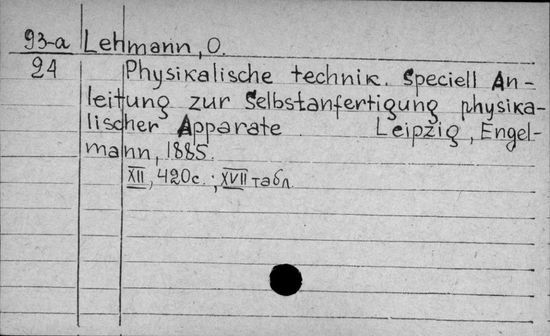 93-a Lehmann, O.
24 Physikalische technik. Speciell An-
leitung zur Selbstanfertigung physika-
lischer Apparate. Leipzig, Engel-
mann, 1885.
XII, 420 с.; XVII табл.